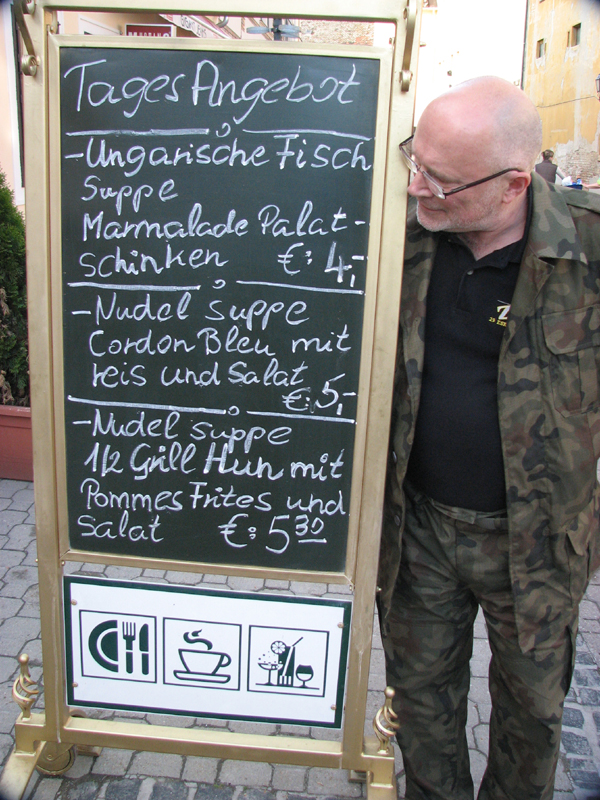 TagesAngebot
-Ungarische Fisch
Suppe
Marmalade Palat-
schinken €: 4,-
-Nudel suppe
Cordon Bleu mit
reis und Salat
€: 5,-
-Nudel suppe
1/2 Grill Hun mit
Pommes Frites und
Salat €: 5 30
Z